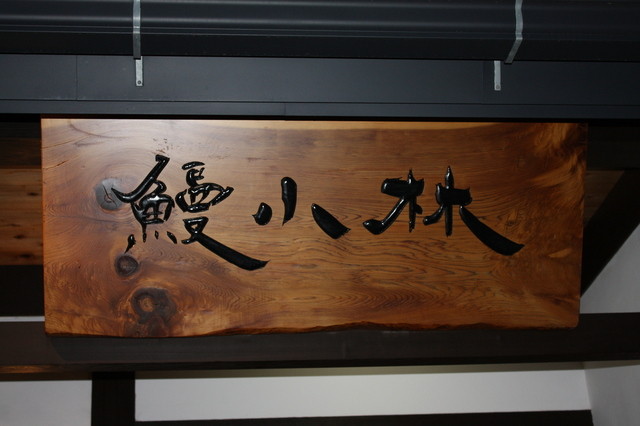 鰻小林